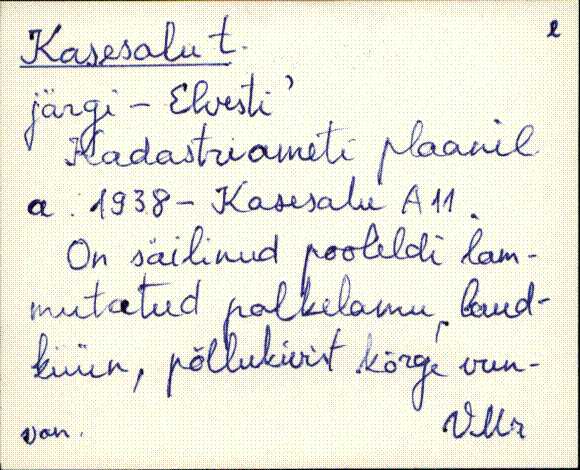 Kasesalu t.
e
järgi – Elvesti'
Kadastriameti plaanil
a. 1938 – Kasesalu A 11.
On säilinud pooleldi lam-
mutatud palkelamu, laud-
küün, põllukivist kõrge vun-
van. VMr